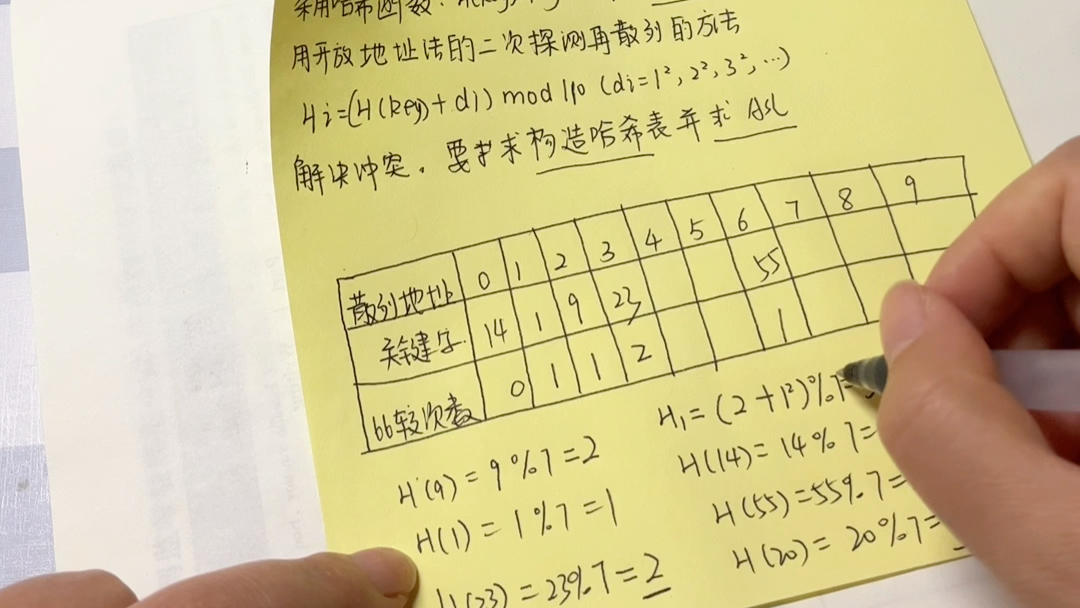 采用哈希函数:
用开放地址法的二次探测再散列的方法
Hi=(H(key)+di) mod 10 (di=1²,2²,3²,…)
解决冲突。要求构造哈希表并求ASL
散列地址 0 1 2 3 4 5 6 7 8 9
关键字 14 1 9 23 55
比较次数 0 1 1 2 1
H(9)=9%7=2
H(1)=1%7=1
H(23)=23%7=2
H₁=(2+1²)%7=
H(14)=14%7=
H(55)=55%7=
H(20)=20%7=